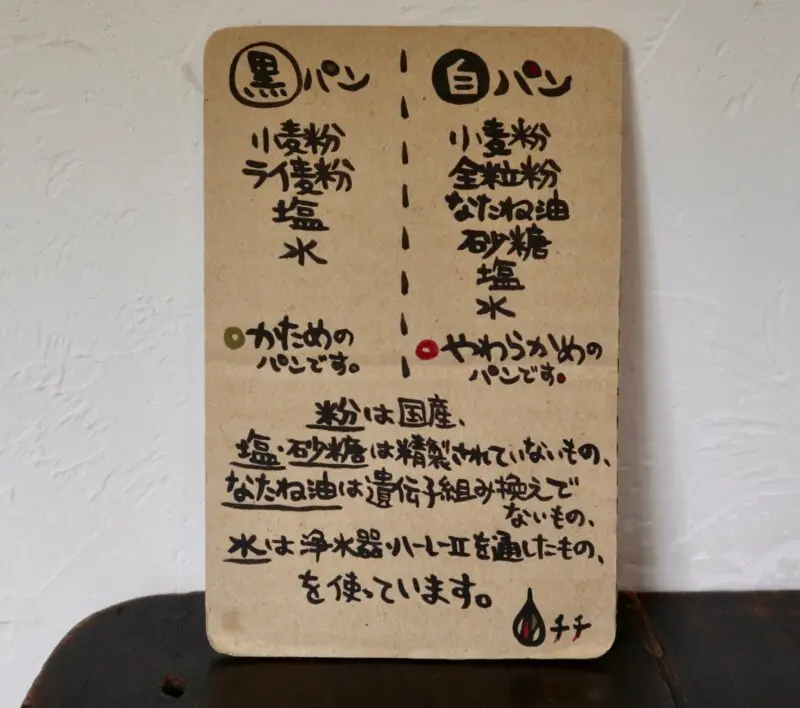 黒パン
小麦粉
ライ麦粉
塩
水
かための
パンです。
白パン
小麦粉
全粒粉
なたね油
砂糖
塩
水
やわらかめの
パンです。
粉は国産、
塩・砂糖は精製されていないもの、
なたね油は遺伝子組み換えで
ないもの、
水は浄水器・ハーレーⅡを通したもの、
を使っています。
チチ